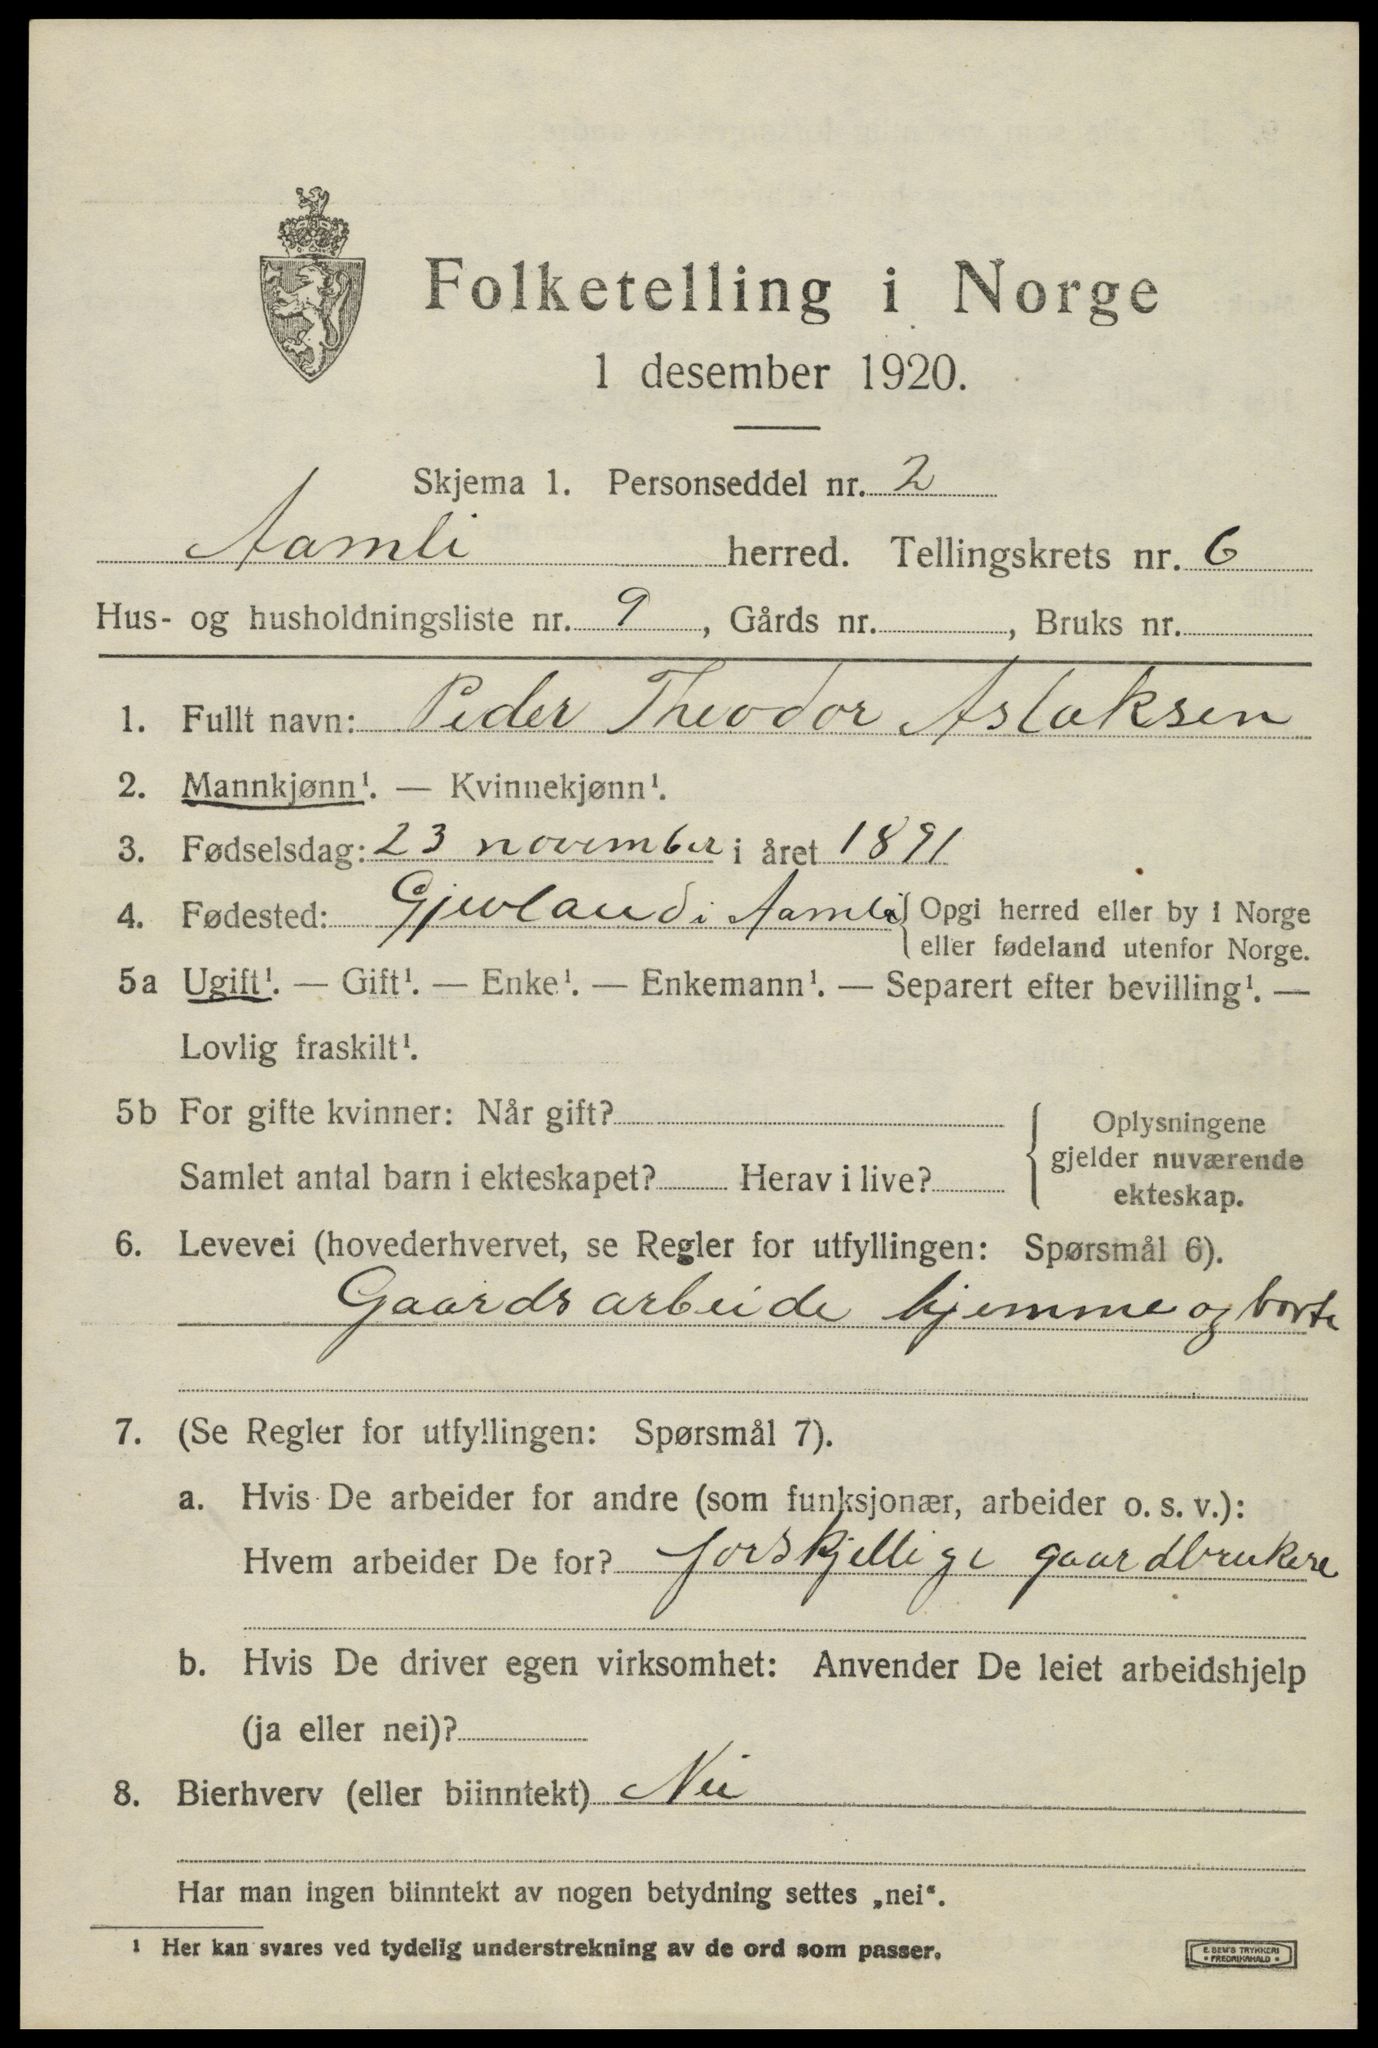 Folketelling i Norge
1 desember 1920.
Skjema 1. Personseddel nr. 2
Aamli herred. Tellingskrets nr. 6
Hus- og husholdningsliste nr. 9, Gårds nr. , Bruks nr.
1. Fullt navn: Peder Theodor Aslaksen
2. Mannkjønn¹. — Kvinnekjønn¹.
3. Fødselsdag: 23 november i året 1891
4. Fødested: i Aamli { Opgi herred eller by i Norge
eller fødeland utenfor Norge.
5a Ugift¹. — Gift¹. — Enke¹. — Enkemann¹. — Separert efter bevilling¹. —
Lovlig fraskilt¹.
5b For gifte kvinner: Når gift?
Samlet antal barn i ekteskapet? Herav i live?
{ Oplysningene
gjelder nuværende
ekteskap.
6. Levevei (hovederhvervet, se Regler for utfyllingen: Spørsmål 6).
Gaardsarbeide hjemme og borte
7. (Se Regler for utfyllingen: Spørsmål 7).
a. Hvis De arbeider for andre (som funksjonær, arbeider o. s. v.):
Hvem arbeider De for? forskjellige gaardbrukere
b. Hvis De driver egen virksomhet: Anvender De leiet arbeidshjelp
(ja eller nei)?
8. Bierhverv (eller biinntekt) Nei
Har man ingen biinntekt av nogen betydning settes „nei“.
¹ Her kan svares ved tydelig understrekning av de ord som passer.
E. SEM'S TRYKKERI
• FREDRIKSHALD •